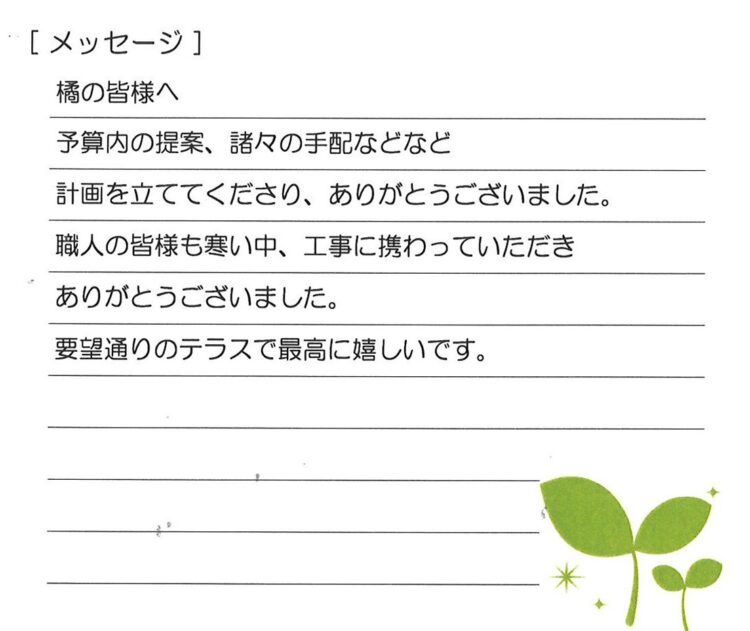 [ メッセージ ]
橘の皆様へ
予算内の提案、諸々の手配などなど
計画を立ててくださり、ありがとうございました。
職人の皆様も寒い中、工事に携わっていただき
ありがとうございました。
要望通りのテラスで最高に嬉しいです。